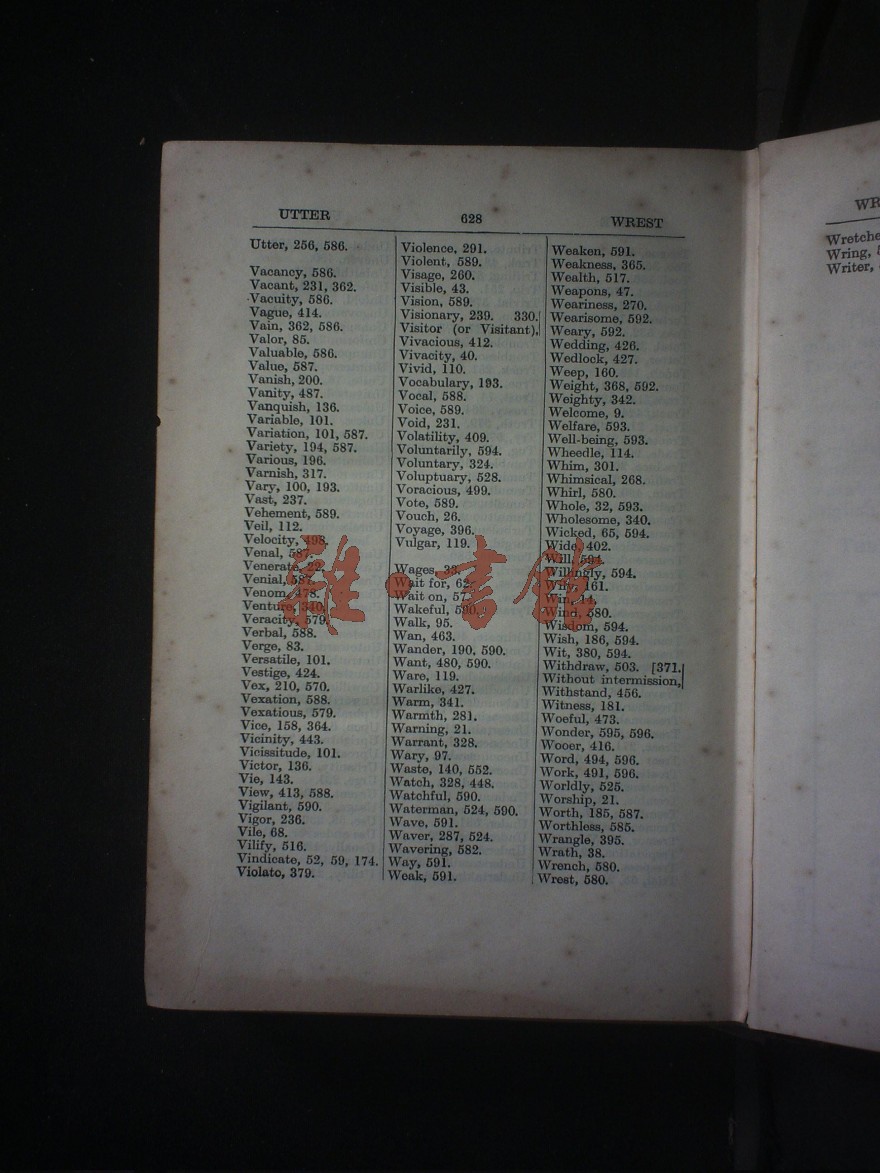 UTTER 628 WREST
Utter, 256, 586.
Vacancy, 586.
Vacant, 231, 362.
Vacuity, 586.
Vague, 414.
Vain, 362, 586.
Valor, 85.
Valuable, 586.
Value, 587.
Vanish, 200.
Vanity, 487.
Vanquish, 136.
Variable, 101.
Variation, 101, 587.
Variety, 194, 587.
Various, 196.
Varnish, 317.
Vary, 100, 193.
Vast, 237.
Vehement, 589.
Veil, 112.
Velocity, 498.
Venal, 587.
Venerate, 22.
Venial, 587.
Venom, 478.
Venture, 340.
Veracity, 579.
Verbal, 588.
Verge, 83.
Versatile, 101.
Vestige, 424.
Vex, 210, 570.
Vexation, 588.
Vexatious, 579.
Vice, 158, 364.
Vicinity, 443.
Vicissitude, 101.
Victor, 136.
Vie, 143.
View, 413, 588.
Vigilant, 590.
Vigor, 236.
Vile, 68.
Vilify, 516.
Vindicate, 52, 59, 174.
Violate, 379.
Violence, 291.
Violent, 589.
Visage, 260.
Visible, 43.
Vision, 589.
Visionary, 239. 330.
Visitor (or Visitant),
Vivacious, 412.
Vivacity, 40.
Vivid, 110.
Vocabulary, 193.
Vocal, 588.
Voice, 589.
Void, 231.
Volatility, 409.
Voluntarily, 594.
Voluntary, 324.
Voluptuary, 528.
Voracious, 499.
Vote, 589.
Vouch, 26.
Voyage, 396.
Vulgar, 119.
Wages, 33.
Wait for, 62.
Wait on, 57.
Wakeful, 590.
Walk, 95.
Wan, 463.
Wander, 190, 590.
Want, 480, 590.
Ware, 119.
Warlike, 427.
Warm, 341.
Warmth, 281.
Warning, 21.
Warrant, 328.
Wary, 97.
Waste, 140, 552.
Watch, 328, 448.
Watchful, 590.
Waterman, 524, 590.
Wave, 591.
Waver, 287, 524.
Wavering, 582.
Way, 591.
Weak, 591.
Weaken, 591.
Weakness, 365.
Wealth, 517.
Weapons, 47.
Weariness, 270.
Wearisome, 592.
Weary, 592.
Wedding, 426.
Wedlock, 427.
Weep, 160.
Weight, 368, 592.
Weighty, 342.
Welcome, 9.
Welfare, 593.
Well-being, 593.
Wheedle, 114.
Whim, 301.
Whimsical, 268.
Whirl, 580.
Whole, 32, 593.
Wholesome, 340.
Wicked, 65, 594.
Wide, 402.
Will, 594.
Willingly, 594.
Wily, 161.
Win, 14.
Wind, 580.
Wisdom, 594.
Wish, 186, 594.
Wit, 380, 594.
Withdraw, 503. [371.
Without intermission,
Withstand, 456.
Witness, 181.
Woeful, 473.
Wonder, 595, 596.
Wooer, 416.
Word, 494, 596.
Work, 491, 596.
Worldly, 525.
Worship, 21.
Worth, 185, 587.
Worthless, 585.
Wrangle, 395.
Wrath, 38.
Wrench, 580.
Wrest, 580.
Wring,
Writer,